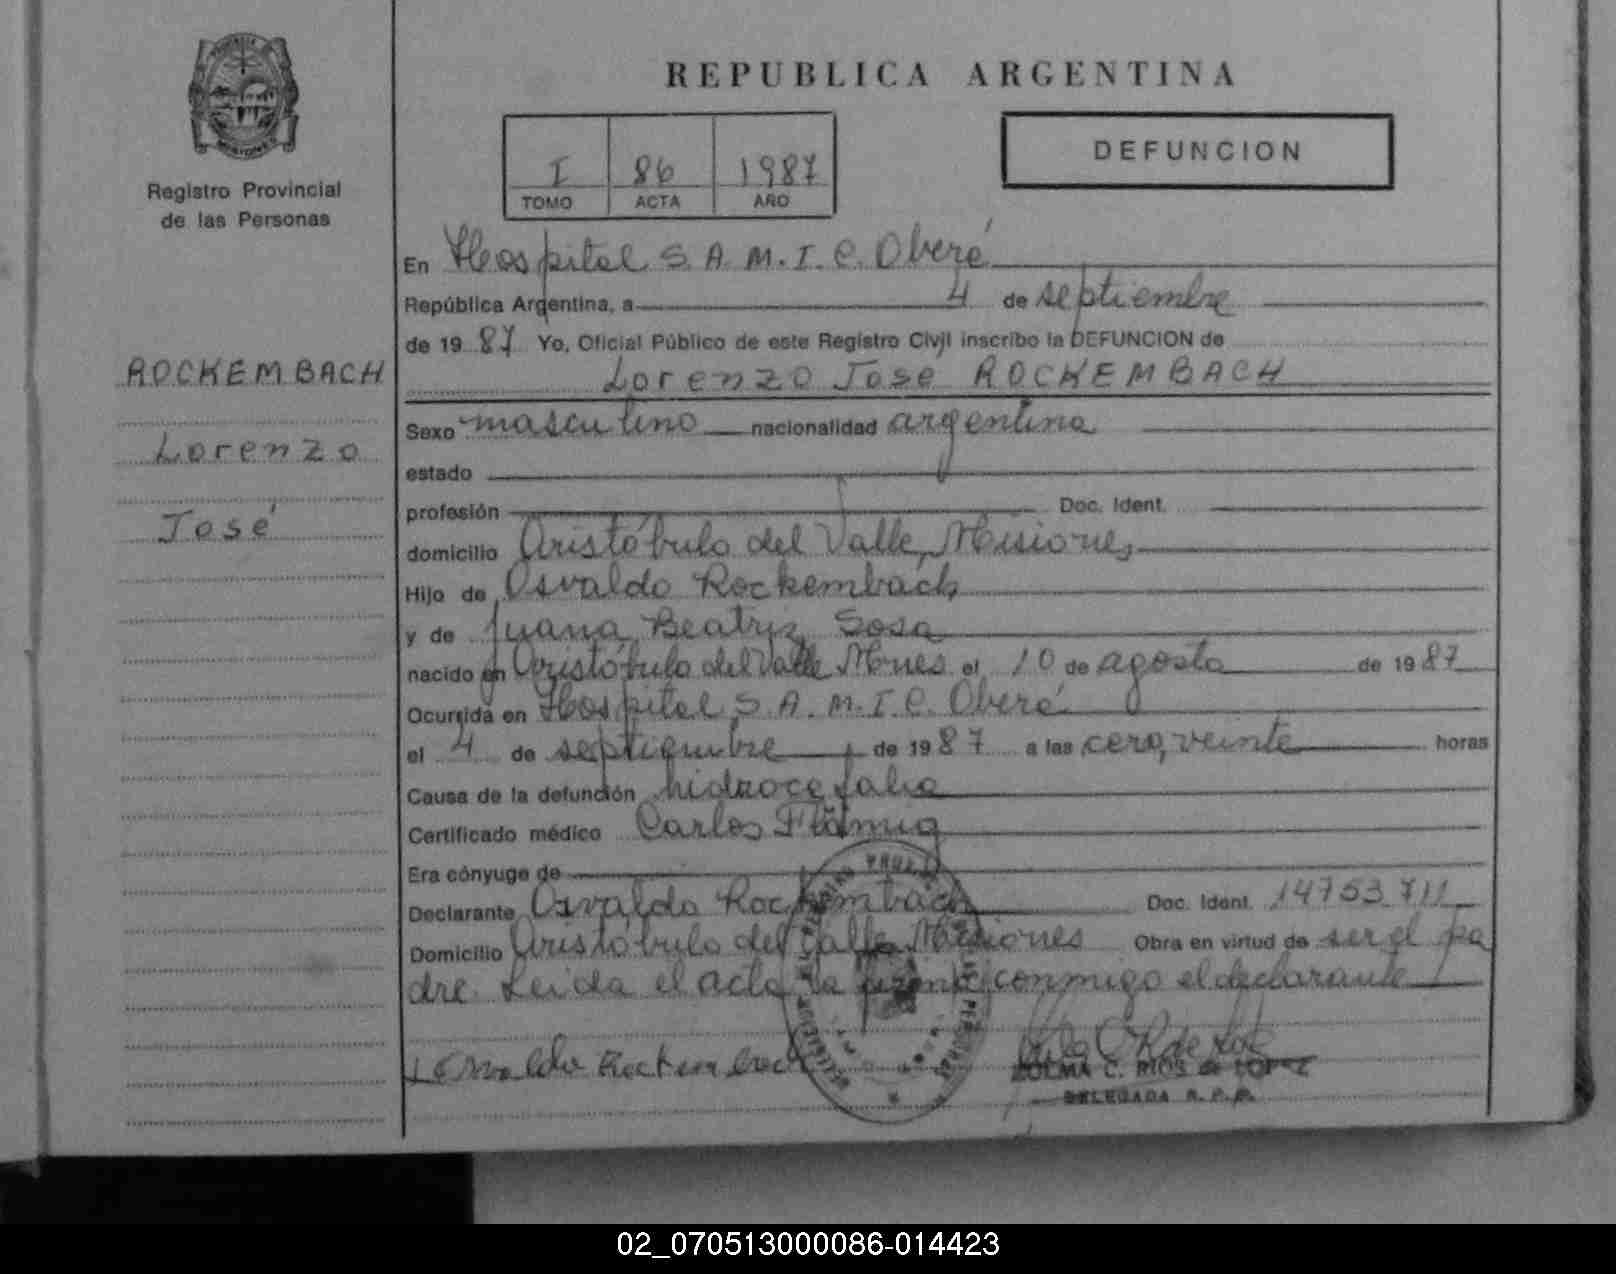 PROVINCIA
MISIONES
Registro Provincial
de las Personas
ROCKEMBACH
Lorenzo
José
REPUBLICA ARGENTINA
I 86 1987
TOMO ACTA AÑO
DEFUNCION
En Hospital S.A.M.I.C. Oberá
República Argentina, a 4 de septiembre
de 1987 Yo, Oficial Público de este Registro Civil inscribo la DEFUNCION de
Lorenzo Jose ROCKEMBACH
Sexo masculino nacionalidad argentina
estado
profesión Doc. Ident.
domicilio Aristóbulo del Valle, Misiones
Hijo de Osvaldo Rockembach
y de Juana Beatriz Sosa
nacido en Aristóbulo del Valle Mnes el 10 de agosto de 1987
Ocurrida en Hospital S.A.M.I.C. Oberá
el 4 de septiembre de 1987 a las cero, veinte horas
Causa de la defunción hidrocefalia
Certificado médico Carlos Flämig
Era cónyuge de
Declarante Osvaldo Rockembach Doc. Ident. 14753711
Domicilio Aristóbulo del Valle Misiones Obra en virtud de ser el pa
dre. Leida el acta la firma conmigo el declarante
Osvaldo Rockembach
ZULMA C. RIOS de LOPEZ
DELEGADA R.P.P.
02_070513000086-014423